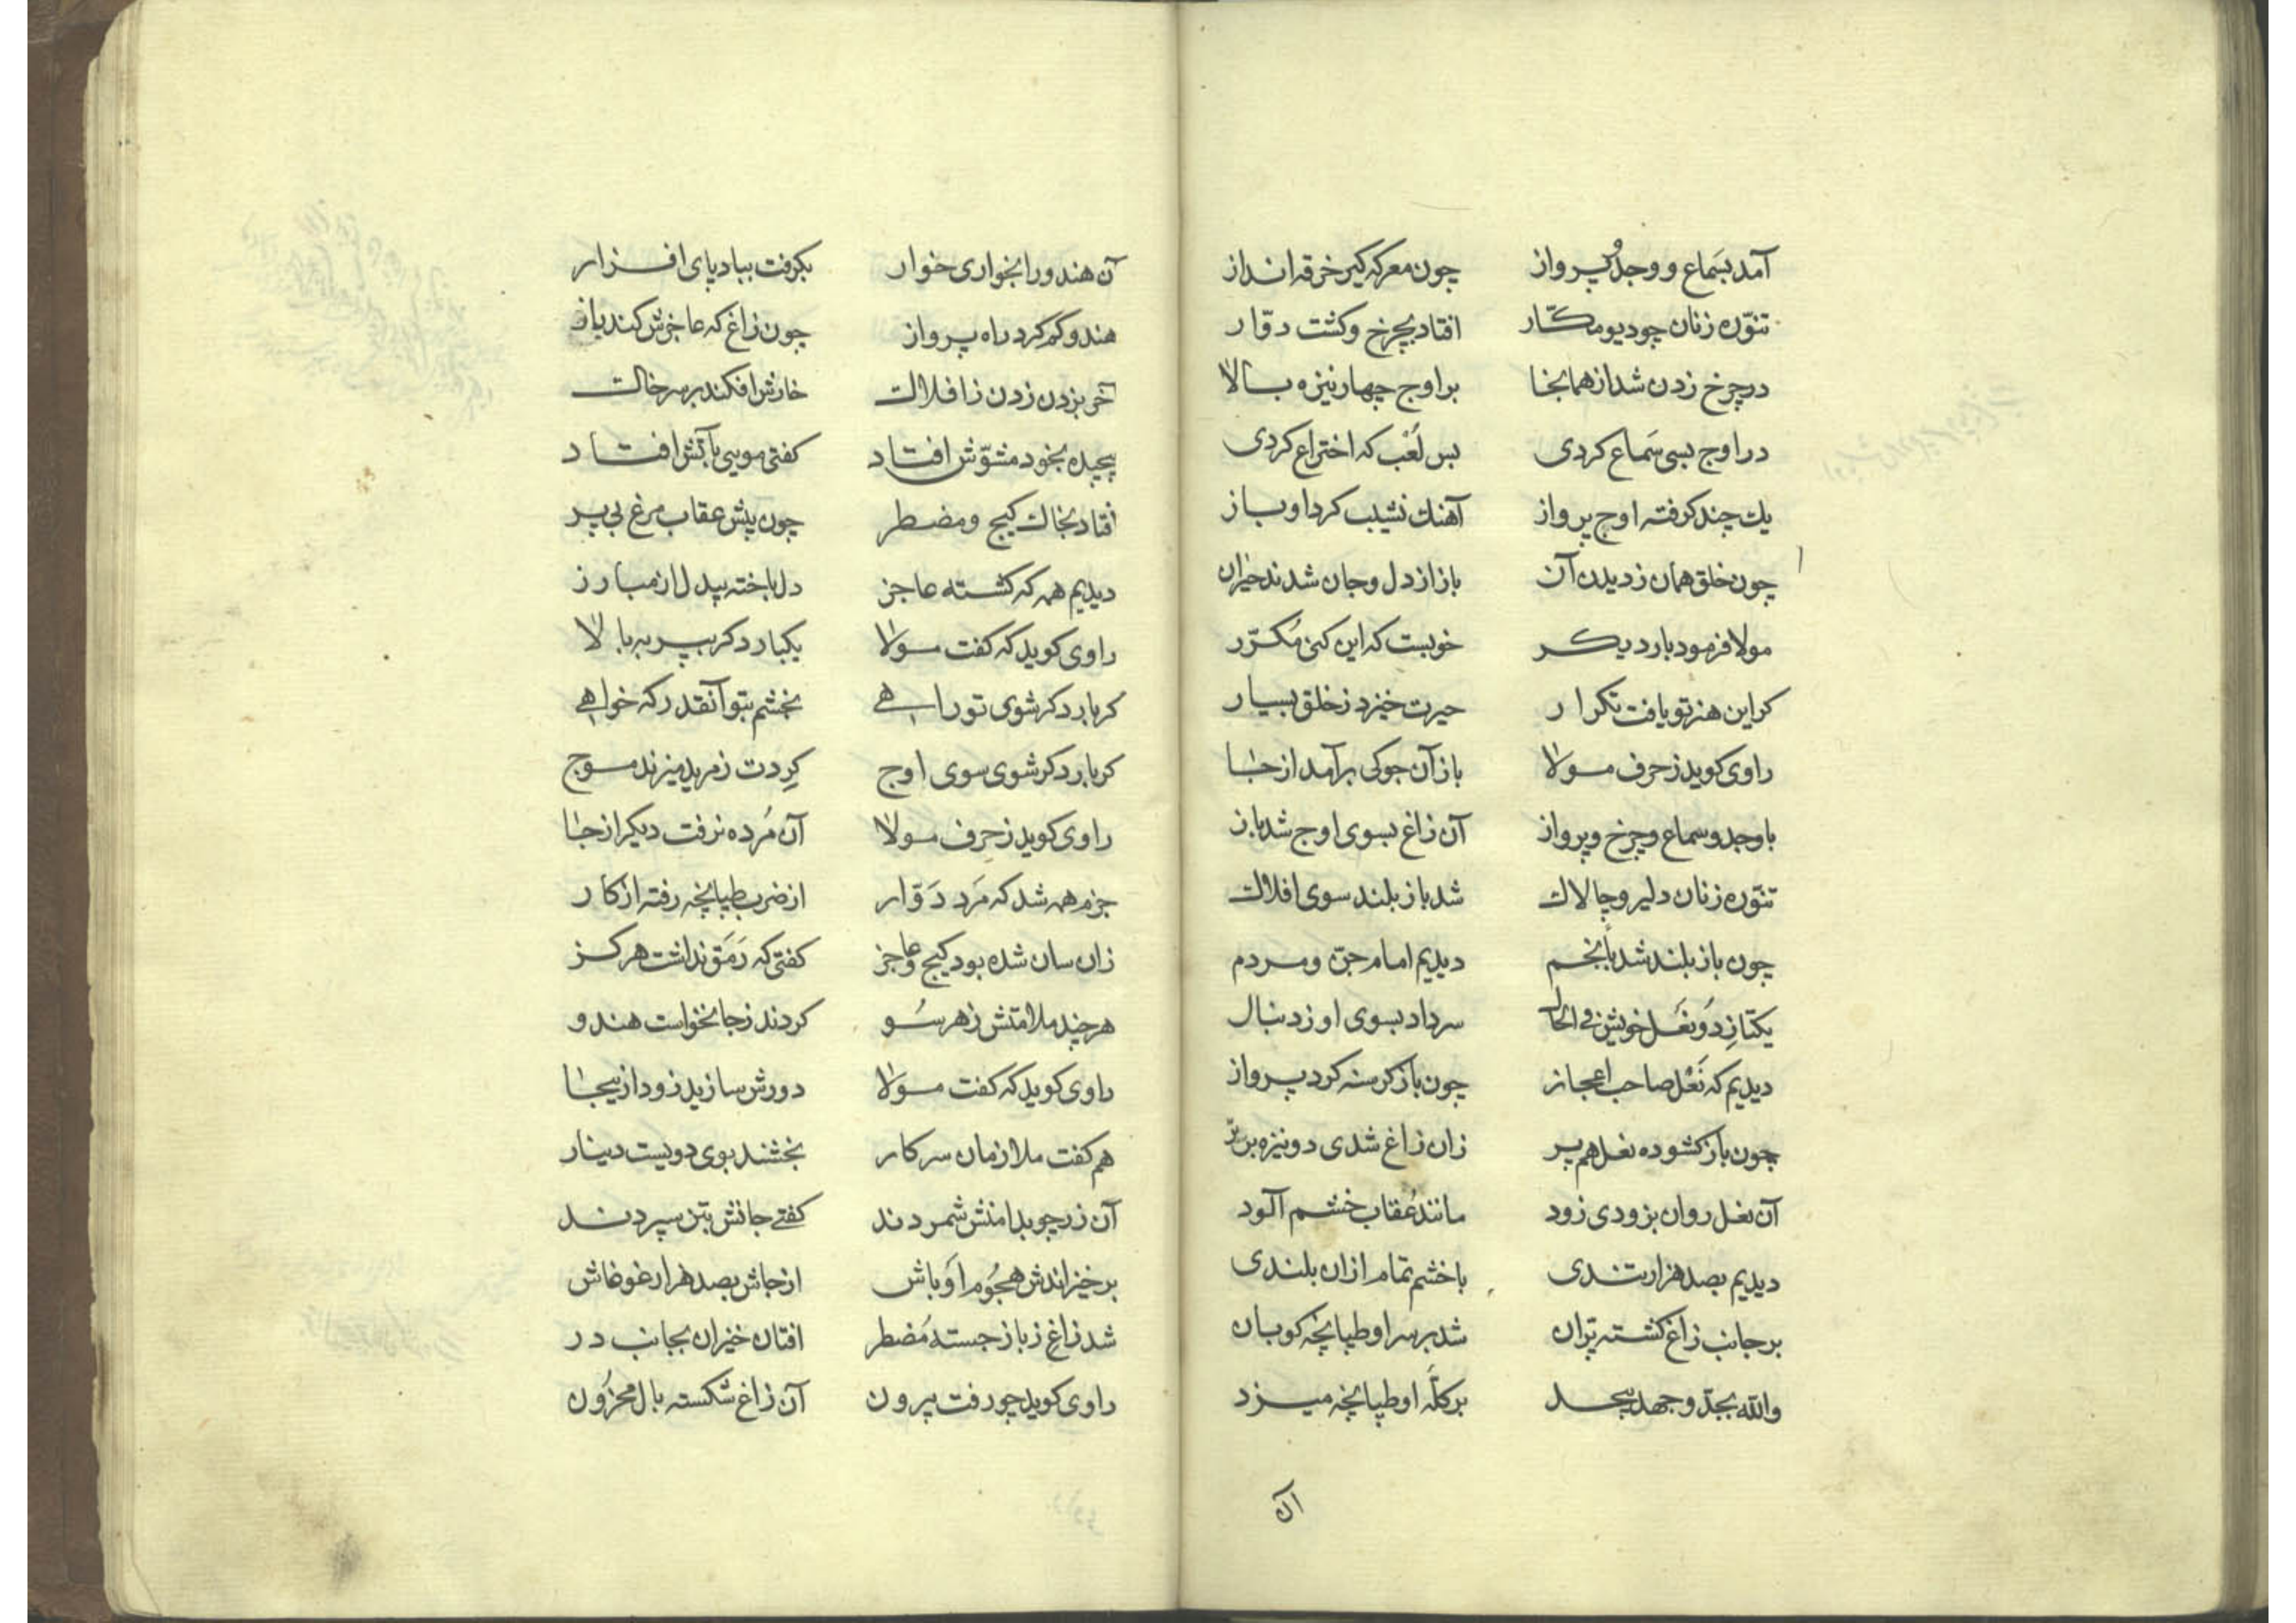 آمد بسَماع و وجد و پرواز چون معرکه کیر خرقه انداز
تنوّره زنان چو دیو مکّار افتاد بچرخ و کشت دوّار
در چرخ زدن شد از همانجا بر اوج چهار نیزه بالا
در اوج بسی سَماع کردی بس لُعْب که اختراع کردی
یک چند کرفته اوج پرواز آهنک نشیب کرد او باز
چون خلق همان ز دیدن آن باز از دل و جان شدند حیران
مولا فرمود بار دیکر خوبست که این کنی مُکرّر
کر این هنر تو یافت تکرار حیرت خیزد ز خلق بسیار
راوی کوید ز حرف مولا باز آن جوکی برآمد از جا
با وجد و سماع و چرخ و پرواز آن زاغ بسوی اوج شد باز
تنوّره زنان دلیر و چالاک شد باز بلند سوی افلاک
چون باز بلند شد بانجم دیدیم امام جنّ و مردم
یکتا زِ دو نَعَل خویش فی الحال سر داد بسوی او ز دنبال
دیدیم که نَعْل صاحب اعجاز چون باز کرسنه کرد پرواز
چون باز کشوده نعل هم پر زان زاغ شدی دو نیزه برتر
آن نعل روان بزودی زود مانند عُقاب خشم آلود
دیدیم بصد هزار تندی با خشم تمام ازان بلندی
بر جانب زاغ کشته پرّان شد بر سر او طپانچه کوبان
والله بجدّ و جهد بیحد بر کلّه او طپانچه میزد
آن
آن هندو را بخواری خوار بکرفت بباد پای افزار
هندو کم کرد راه پرواز چون زاغ که عاجزش کند باز
آخر بزدن زدن ز افلاک خارش افکند بر سر خاک
پیچیده بخود مشوّش افتاد کفتی مویی بآتش افتاد
افتاد بخاک کیج و مضطر چون پیش عقاب مرغ بی پر
دیدیم همه که کشته عاجز دل باخته بیدل از مبارز
راوی کوید که کفت مولا یکبار دکر بپر به بالا
کر بار دکر شوی تو راهی بخشم بتو آنقدر که خواهی
کر بار دکر شوی سوی اوج کِردت ز مرید میزند موج
راوی کوید ز حرف مولا آن مُرده نرفت دیکر از جا
جزم همه شد که مَرد دَوّار از ضرب طپانچه رفته از کار
زان سان شده بود کیج و عاجز کفتی که رَمَق نداشت هرکز
هر چند ملامتش ز هر سُو کردند ز جا نخواست هندو
راوی کوید که کفت مولا دورش سازید زود ازینجا
هم کفت ملازمان سرکار بخشند بوی دویست دینار
آن زر چو بدامنش شمردند کفتی جانش بتن سپردند
برخیزاندش هجُوم اَوباش از جاش بصد هزار غوغاش
شد زاغ ز باز جسته مُضطر افتان خیزان بجانب در
راوی کوید چو رفت بیرون آن زاغ شکسته بال محزُون